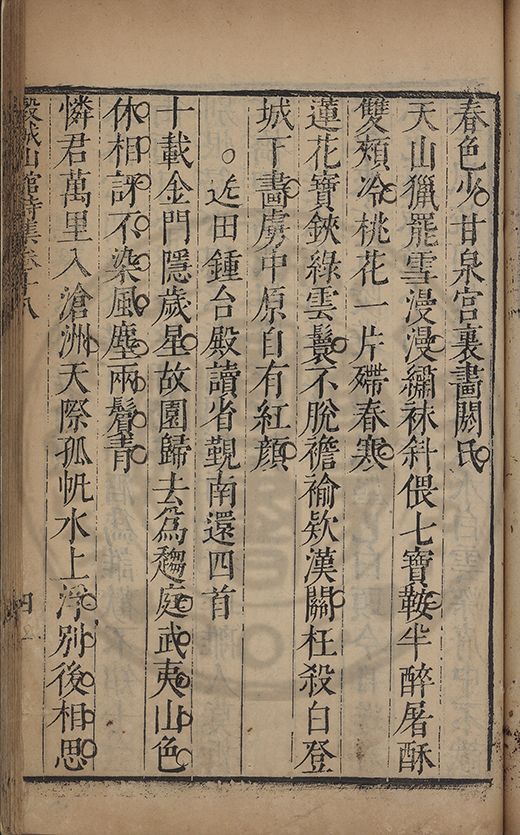 春色少甘泉宮裏畫閼氏
天山獵罷雪漫漫繡袜斜偎七寶鞍半醉屠酥
雙頰冷桃花一片殢春寒
蓮花寶鋏綠雲鬟不脫襜褕欵漢關枉殺白登
城下畫虜中原自有紅顏
送田鍾台殿讀省覲南還四首
十載金門隱歲星故園歸去爲趨庭武夷山色
休相訝不染風塵兩鬢青
憐君萬里入滄洲天際孤帆水上浮別後相思
穀城山館詩集卷十八 四